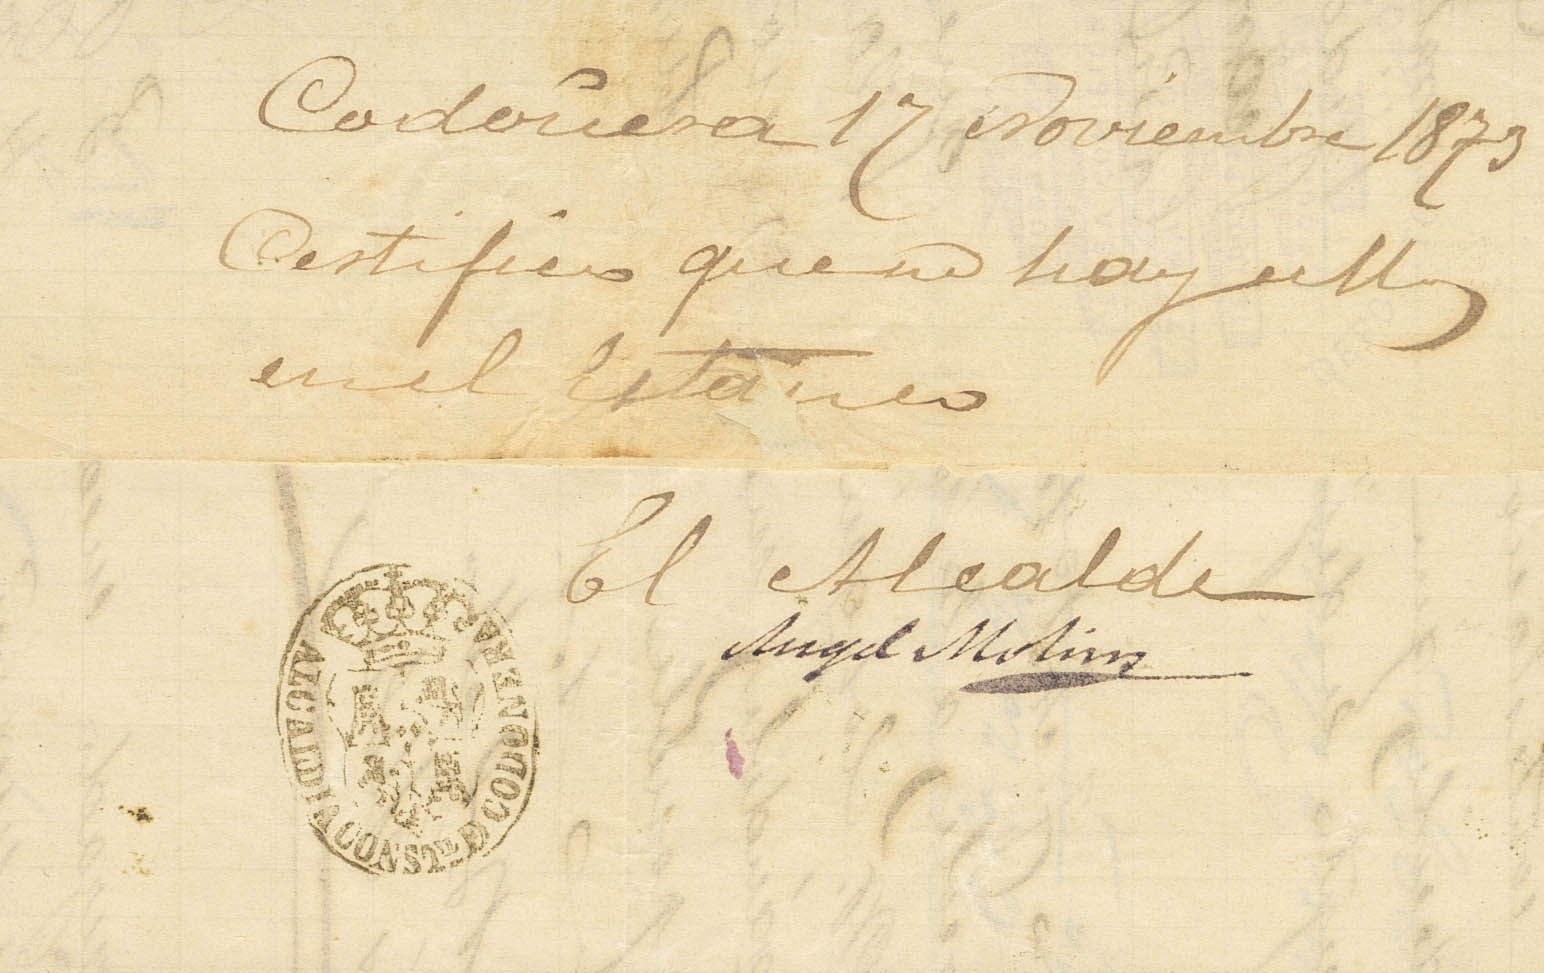 Codoñera 17 Noviembre 1873
Certifico que no hay sellos
en el Estanco
El Alcalde
Angel Molins
ALCALDIA CONSTL. D. CODOÑERA